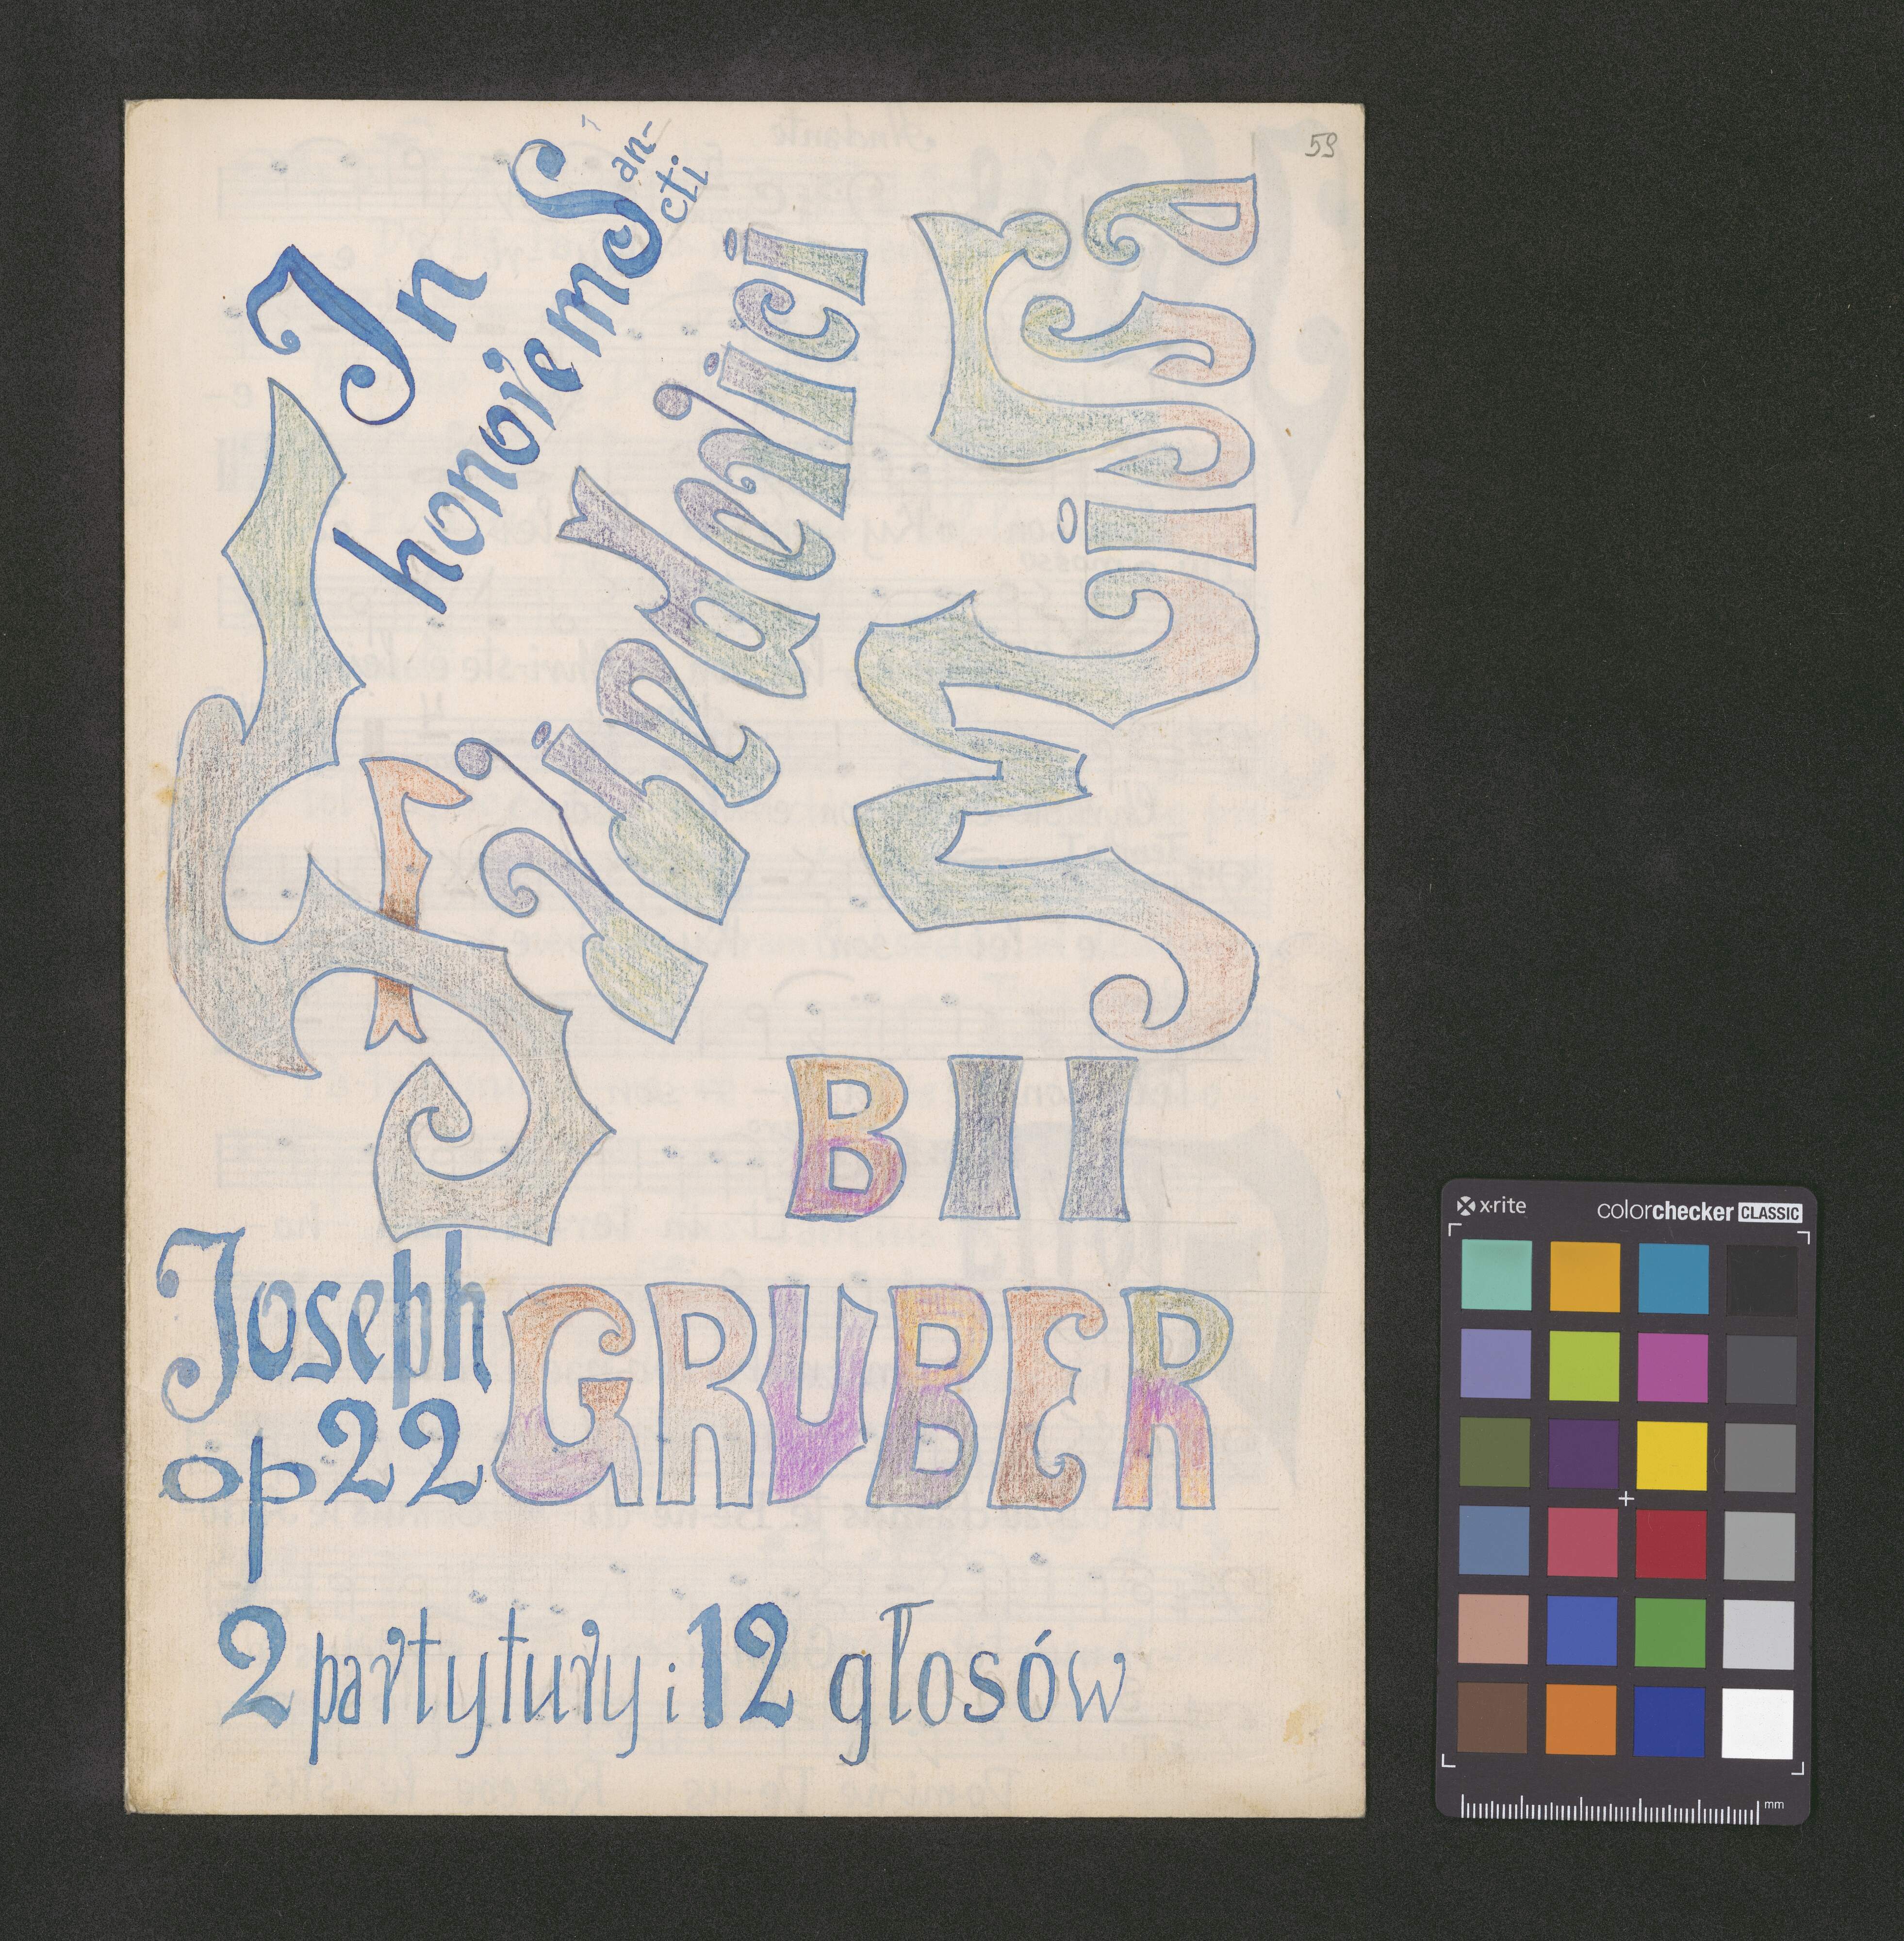 59
In
honorem Sancti
Friderici
Missa
B II
Joseph GRUBER
op 22
2 partytury i 12 głosów
x·rite colorchecker CLASSIC
mm